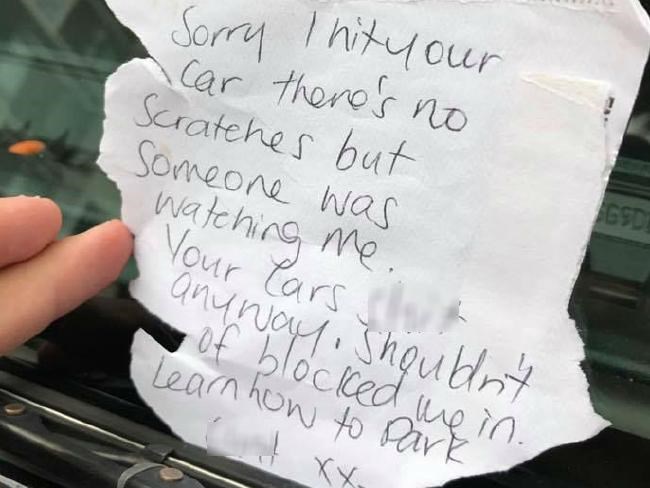 Sorry I hit your
Car there's no
Scratches but
Someone was
watching me.
Your Cars
anyway. Shouldn't
of blocked me in.
Learn how to Park
xx